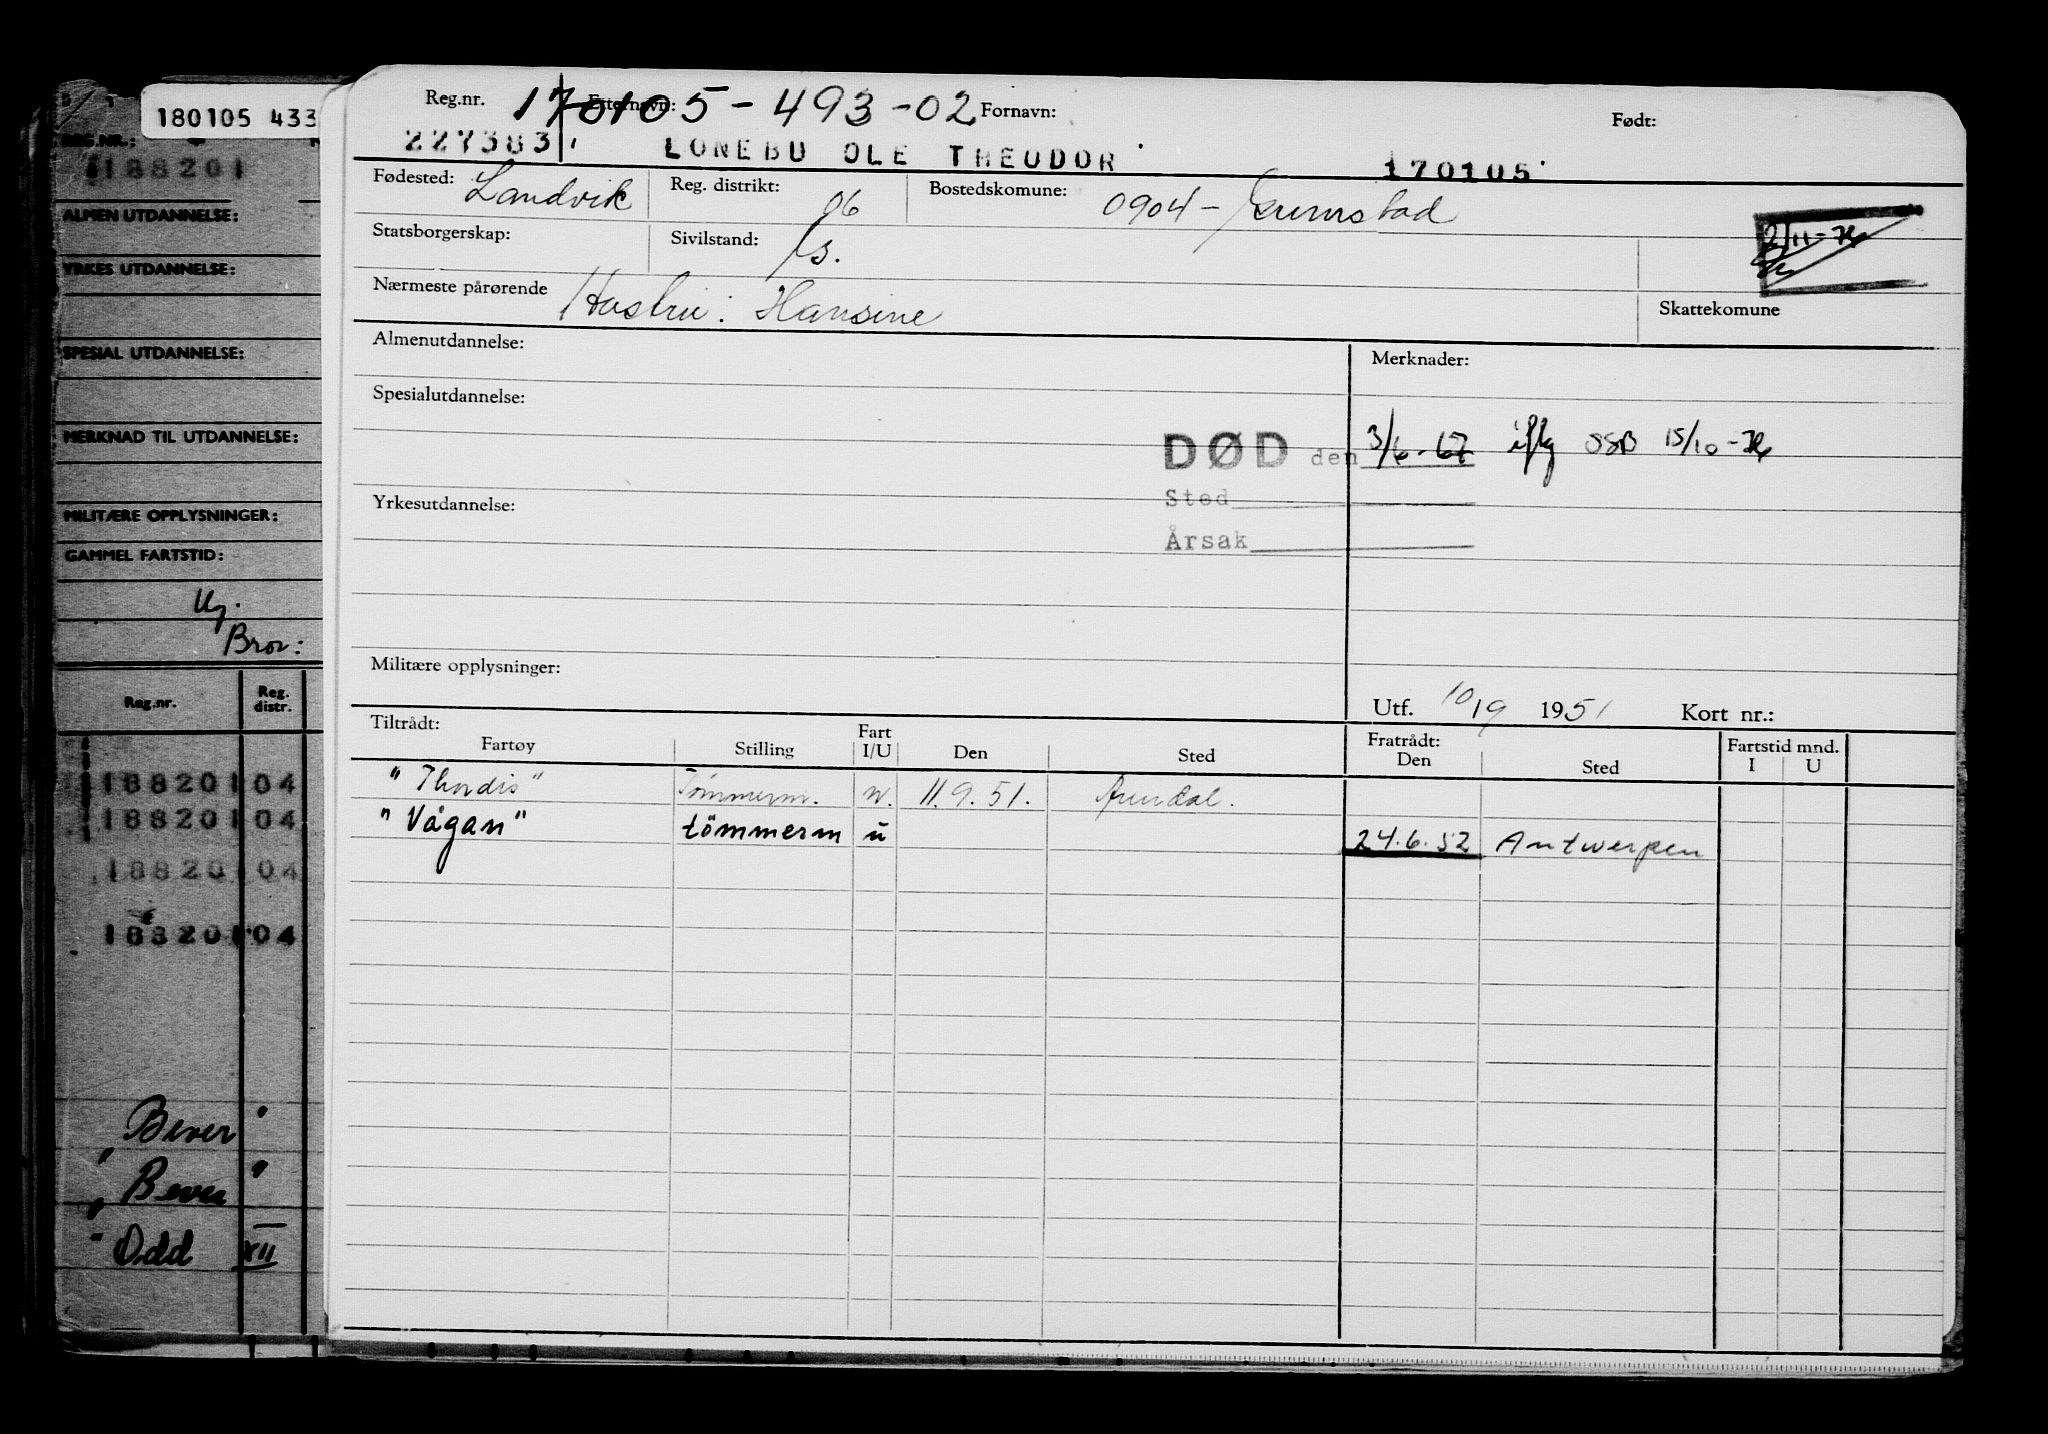 180105 433
REG.NR.:
188201
ALMEN UTDANNELSE:
YRKES UTDANNELSE:
SPESIAL UTDANNELSE:
MERKNAD TIL UTDANNELSE:
MILITÆRE OPPLYSNINGER:
GAMMEL FARTSTID:
Bror:
Reg.nr. Reg. distr.
188201 04
188201 04
188201 04
188201 04
Bever"
"Bever"
"Odd XII
Reg.nr. 170105-493-02 Etternavn: Fornavn: Født:
227383 LONEBU OLE THEODOR 170105
Fødested: Landvik Reg. distrikt: 06 Bostedskomune: 0904 - Grimstad
Statsborgerskap: Sivilstand: G.
2/11-76
Nærmeste pårørende Hustru: Hansine Skattekomune
Almenutdannelse: Merknader:
Spesialutdannelse:
DØD den 3/6-67 iflg SSB 15/10-76
Sted
Yrkesutdannelse:
Årsak
Militære opplysninger:
Utf. 10/9 1951 Kort nr.:
Tiltrådt: Fratrådt:
Fartøy Stilling Fart I/U Den Sted Den Sted Fartstid mnd. I U
"Thordis" Tømmerm. u. 11.9.51. Arendal.
"Vågan" tömmerm u 24.6.52 Antwerpen